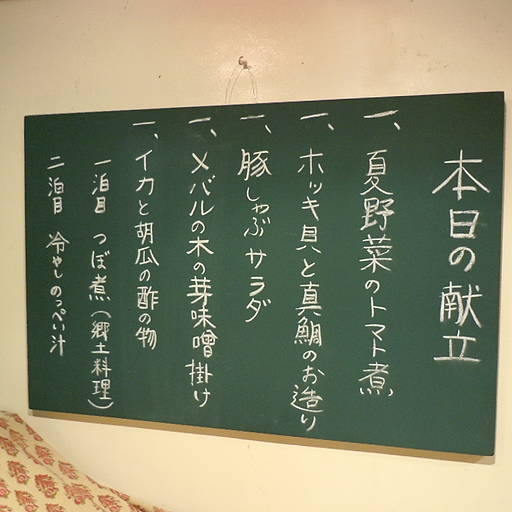 本日の献立
一、夏野菜のトマト煮
一、ホッキ貝と真鯛のお造り
一、豚しゃぶサラダ
一、メバルの木の芽味噌掛け
一、イカと胡瓜の酢の物
一泊目 つぼ煮(郷土料理)
二泊目 冷やしのっぺい汁